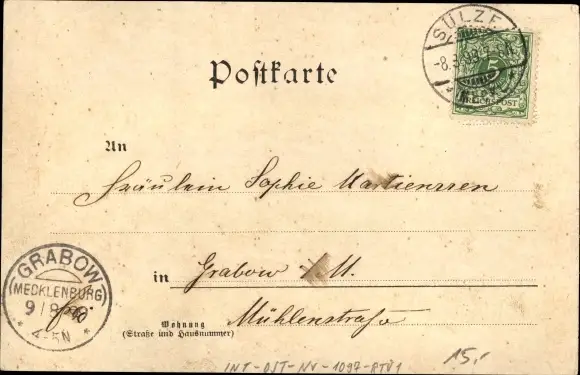 SÜLZE
-8.3.
5
REICHSPOST
Postkarte
An
Fräulein Sophie Martienssen
in Grabow i/M.
GRABOW
(MECKLENBURG)
9/8
4-5N
Mühlenstraße
Wohnung
(Straße und Hausnummer)
INT-OST-NV-1097-RTV1
15,-